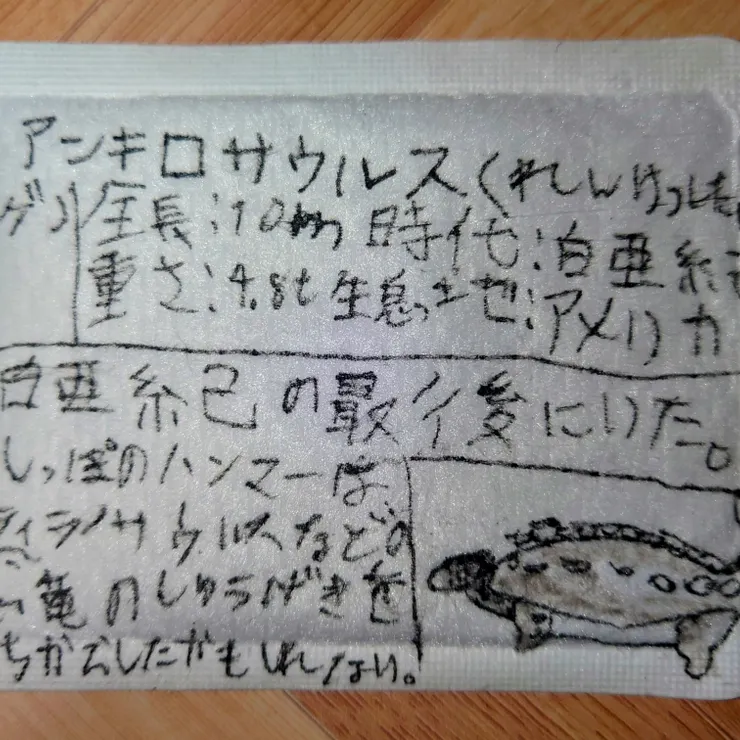 アンキロサウルス（れんけつした
グソ
全長:10m 時代:白亜紀
重さ:4.8t 生息土也:アメリカ
白亜紀の最後にいた。
しっぽのハンマーは、
ティラノサウルスなどの
竜のしゅうげきを
したかもしれない。